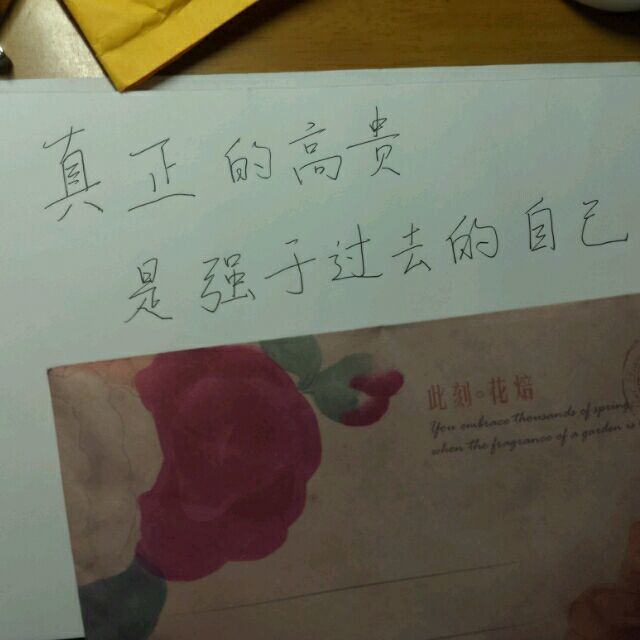 真正的高贵
是强于过去的自己
此刻。花焙
You embrace thousands of spring,
when the fragrance of a garden is